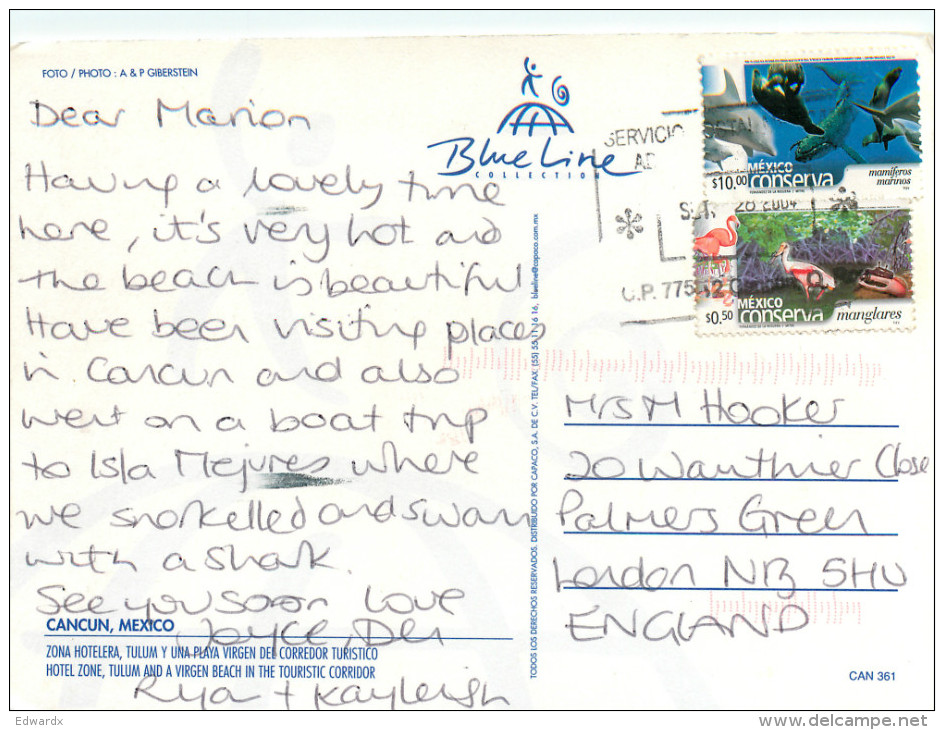 FOTO / PHOTO : A & P GIBERSTEIN
Dear Marion
Having a lovely time
here, it's very hot and
the beach is beautiful
Have been visiting places
in Cancun and also
went on a boat trip
to Isla Mejures where
we snorkelled and swam
with a shark.
See you soon Love
Joyce, Del
Ryan + Kayleigh
CANCUN, MEXICO
ZONA HOTELERA, TULUM Y UNA PLAYA VIRGEN DEL CORREDOR TURISTICO
HOTEL ZONE, TULUM AND A VIRGEN BEACH IN THE TOURISTIC CORRIDOR
Blue Line
COLLECTION
TODOS LOS DERECHOS RESERVADOS. DISTRIBUIDO POR CAPACO, S.A. DE C.V. TEL/FAX. (55) 16 16, blueline@capaco.com.mx
SERVICIO POSTAL
20 2004
C.P. 775
MÉXICO
conserva
$10.00
mamíferos
marinos
MÉXICO
conserva
$0.50
manglares
Mrs M Hooker
20 Wauthier Close
Palmers Green
London N13 5HU
ENGLAND
CAN 361
Edwardx
www.delcampe.net